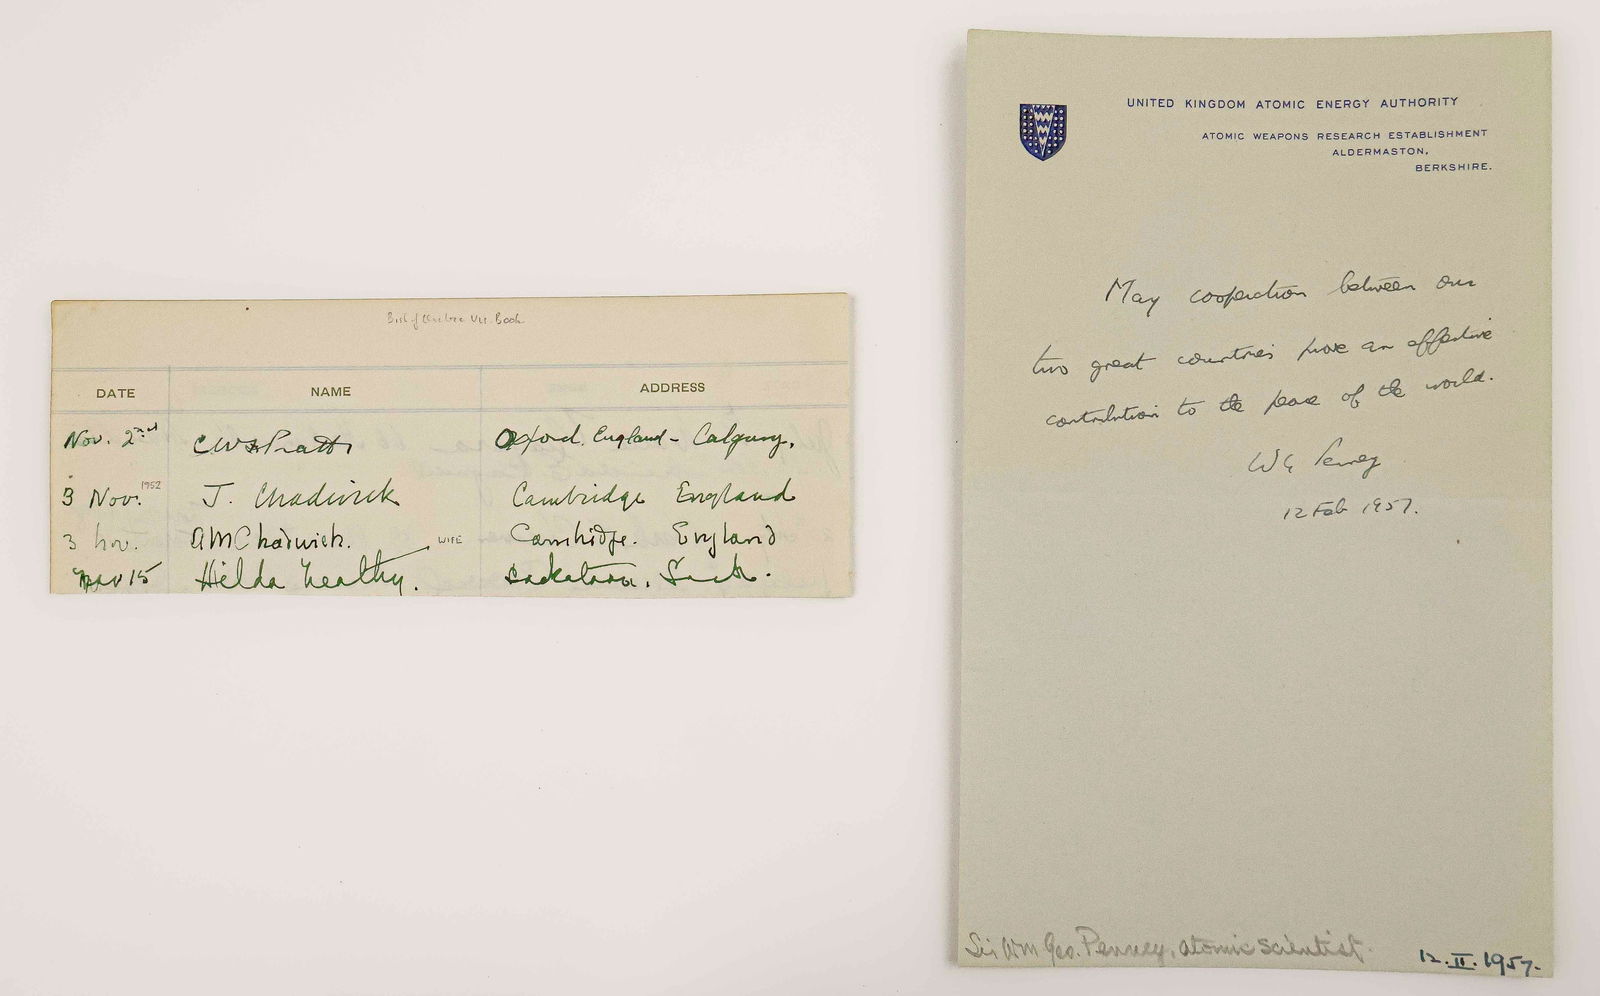 Bish of Quebec Vis. Book
DATE NAME ADDRESS
Nov. 2nd Oxford. England - Calgary.
3 Nov. 1952 J. Chadwick Cambridge England
3 Nov. AMChadwick. WIFE Cambridge. England
Nov 15 Hilda Neatby. Saskatoon. Sask.
UNITED KINGDOM ATOMIC ENERGY AUTHORITY
ATOMIC WEAPONS RESEARCH ESTABLISHMENT
ALDERMASTON,
BERKSHIRE.
May cooperation between our
two great countries prove an effective
contribution to the peace of the world.
WG Penney
12 Feb 1957.
Sir Wm Geo. Penney, atomic scientist.
12.II.1957.